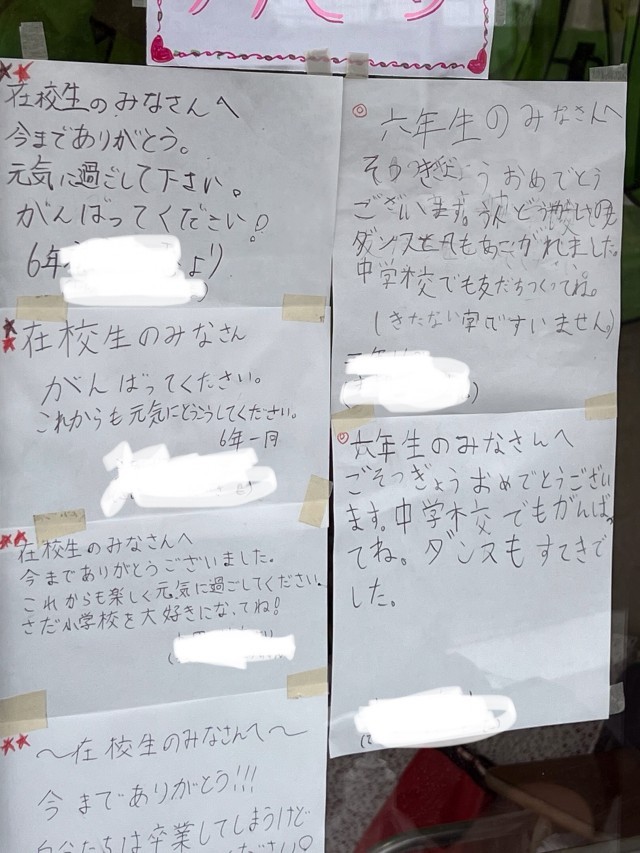 在校生のみなさんへ
今までありがとう。
元気に過ごして下さい。
がんばってください!!
6年
より
在校生のみなさん
がんばってください。
これからも元気にどうこうしてください。
6年一同
在校生のみなさんへ
今までありがとうございました。
これからも楽しく元気に過ごしてください。
さだ小学校を大好きになってね!
～在校生のみなさんへ～
今までありがとう!!!
自分たちは卒業してしまうけど
ください
六年生のみなさんへ
そつぎょうおめでとう
ございます。
ダンスとてもあこがれました。
中学校でも友だちつくってね。
(きたない字ですいません。)
六年生のみなさんへ
ごそつぎょうおめでとうござい
ます。中学校でもがんばっ
てね。ダンスもすてきで
した。